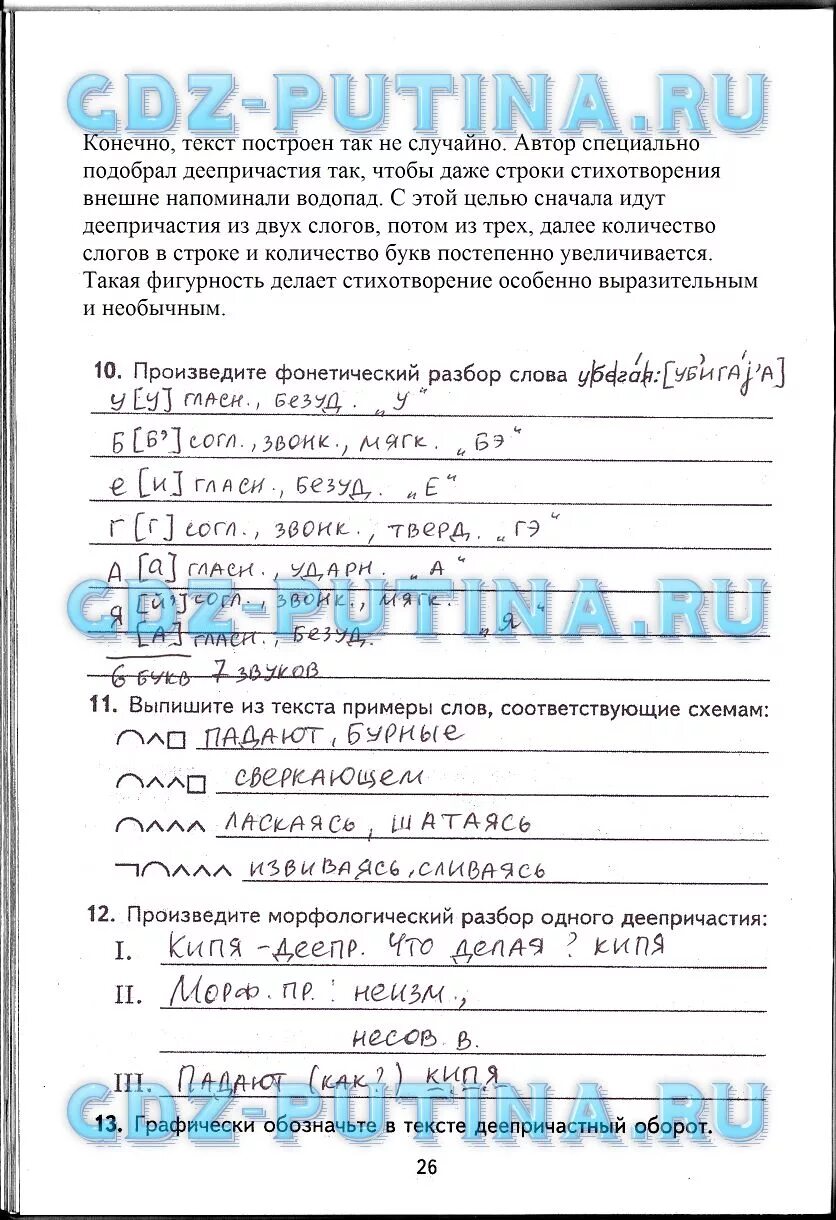 GDZ-PUTINA.RU
Конечно, текст построен так не случайно. Автор специально
подобрал деепричастия так, чтобы даже строки стихотворения
внешне напоминали водопад. С этой целью сначала идут
деепричастия из двух слогов, потом из трех, далее количество
слогов в строке и количество букв постепенно увеличивается.
Такая фигурность делает стихотворение особенно выразительным
и необычным.
10. Произведите фонетический разбор слова убегая: [УБ'ИГАЈ'А]
У [У] ГЛАСН., БЕЗУД. „У“
Б [Б'] СОГЛ., ЗВОНК., МЯГК. „БЭ“
Е [И] ГЛАСН., БЕЗУД. „Е“
Г [Г] СОГЛ., ЗВОНК., ТВЕРД. „ГЭ“
А [А] ГЛАСН., УДАРН. „А“
GDZ-PUTINA.RU
Я [Й'] СОГЛ., ЗВОНК., МЯГК.
[А] ГЛАСН., БЕЗУД. „Я“
6 БУКВ 7 ЗВУКОВ
11. Выпишите из текста примеры слов, соответствующие схемам:
ПАДАЮТ, БУРНЫЕ
СВЕРКАЮЩЕМ
ЛАСКАЯСЬ, ШАТАЯСЬ
ИЗВИВАЯСЬ, СЛИВАЯСЬ
12. Произведите морфологический разбор одного деепричастия:
I. КИПЯ - ДЕЕПР. ЧТО ДЕЛАЯ? КИПЯ
II. МОРФ. ПР.: НЕИЗМ.,
НЕСОВ. В.
III. ПАДАЮТ (КАК?) КИПЯ
GDZ-PUTINA.RU
13. Графически обозначьте в тексте деепричастный оборот.
26